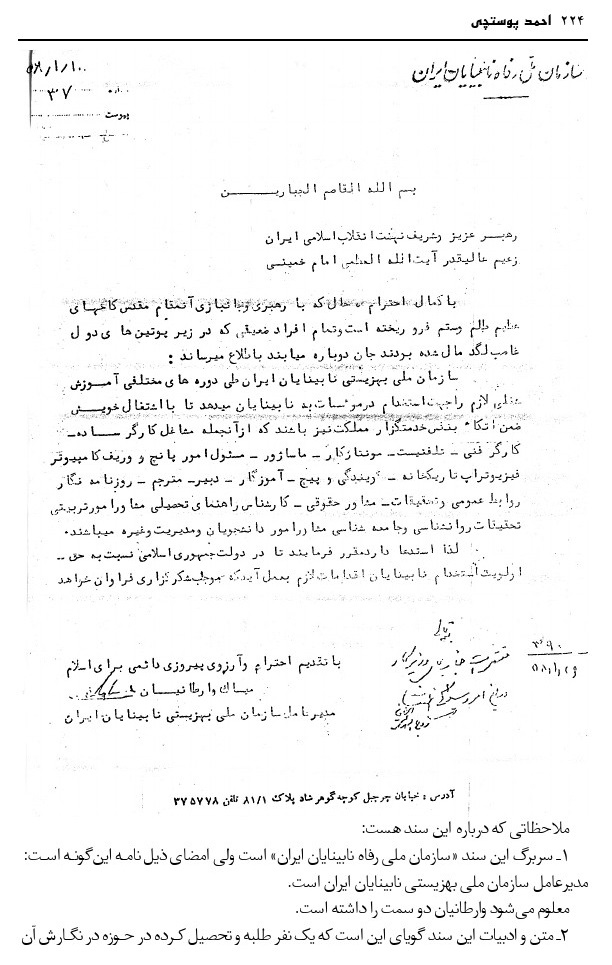 ۲۲۴ احمد پوستچی
سازمان ملی رفاه نابینایان ایران
۵۸/۱/۱۰
شماره ۳۷
پیوست
بسم الله القاصم الجبارین
رهبر عزیز وشریف نهضت انقلاب اسلامی ایران
زعیم عالیقدر آیت الله العظمی امام خمینی
با کمال احترام به حال که با رهبری وجانبازی آنمقام مقدس کاخهای
عظیم ظلم وستم فرو ریخته است وتمام افراد ضعیفی که در زیر پوتین های دول
غاصب لگد مال شده بودند جان دوباره میابند باطلاع میرساند :
سازمان ملی بهزیستی نابینایان ایران طی دوره های مختلفی آموزش
شغلی لازم راجهت استخدام درموسسات به نابینایان میدهد تا با اشتغال خویش
ضمن اتکاء بنفس خدمتگزار مملکت نیز باشند که ازآنجمله مشاغل کارگر ساده ـ
کارگر فنی ـ تلفنیست ـ مونتاژکار ـ ماساژور ـ مسئول امور پانچ و وریف کامپیوتر
فیزیوتراپ تاریکخانه ـ گویندگی و پیج ـ آموزگار ـ دبیر ـ مترجم ـ روزنامه نگار
روابط عمومی وتحقیقات ـ مشاور حقوقی ـ کارشناس راهنمای تحصیلی مشاورامورتربیتی
تحقیقات روانشناسی وجامعه شناسی مشاورامور دانشجویان ومدیریت وغیره میباشند.
لذا استدعا دارد مقرر فرمایند تا در دولت جمهوری اسلامی نسبت به حق ـ
اولویت استخدام نابینایان اقدامات لازم بعمل آید که موجب شکرگزاری فراوان خواهد
بود
با تقدیم احترام وآرزوی پیروزی دائمی برای اسلام
میناک وارطانیان
مدیرعامل سازمان ملی بهزیستی نابینایان ایران
۳۹۰
آدرس : خیابان چرچیل کوچه گوهرشاد پلاک ۸۱/۱ تلفن ۳۷۵۷۷۸
ملاحظاتی که درباره این سند هست:
۱ـ سربرگ این سند «سازمان ملی رفاه نابینایان ایران» است ولی امضای ذیل نامه این‌گونه است:
مدیرعامل سازمان ملی بهزیستی نابینایان ایران است.
معلوم می‌شود وارطانیان دو سمت را داشته است.
۲ـ متن و ادبیات این سند گویای این است که یک نفر طلبه و تحصیل کرده در حوزه در نگارش آن